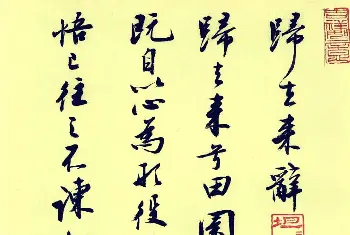 歸去来辭
歸去来兮田園
既自以心為形役
悟已往之不諫